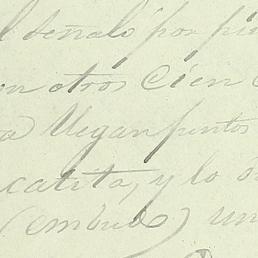 señaló por
otros cien
llegan juntos
catita, y lo
(embudo) un